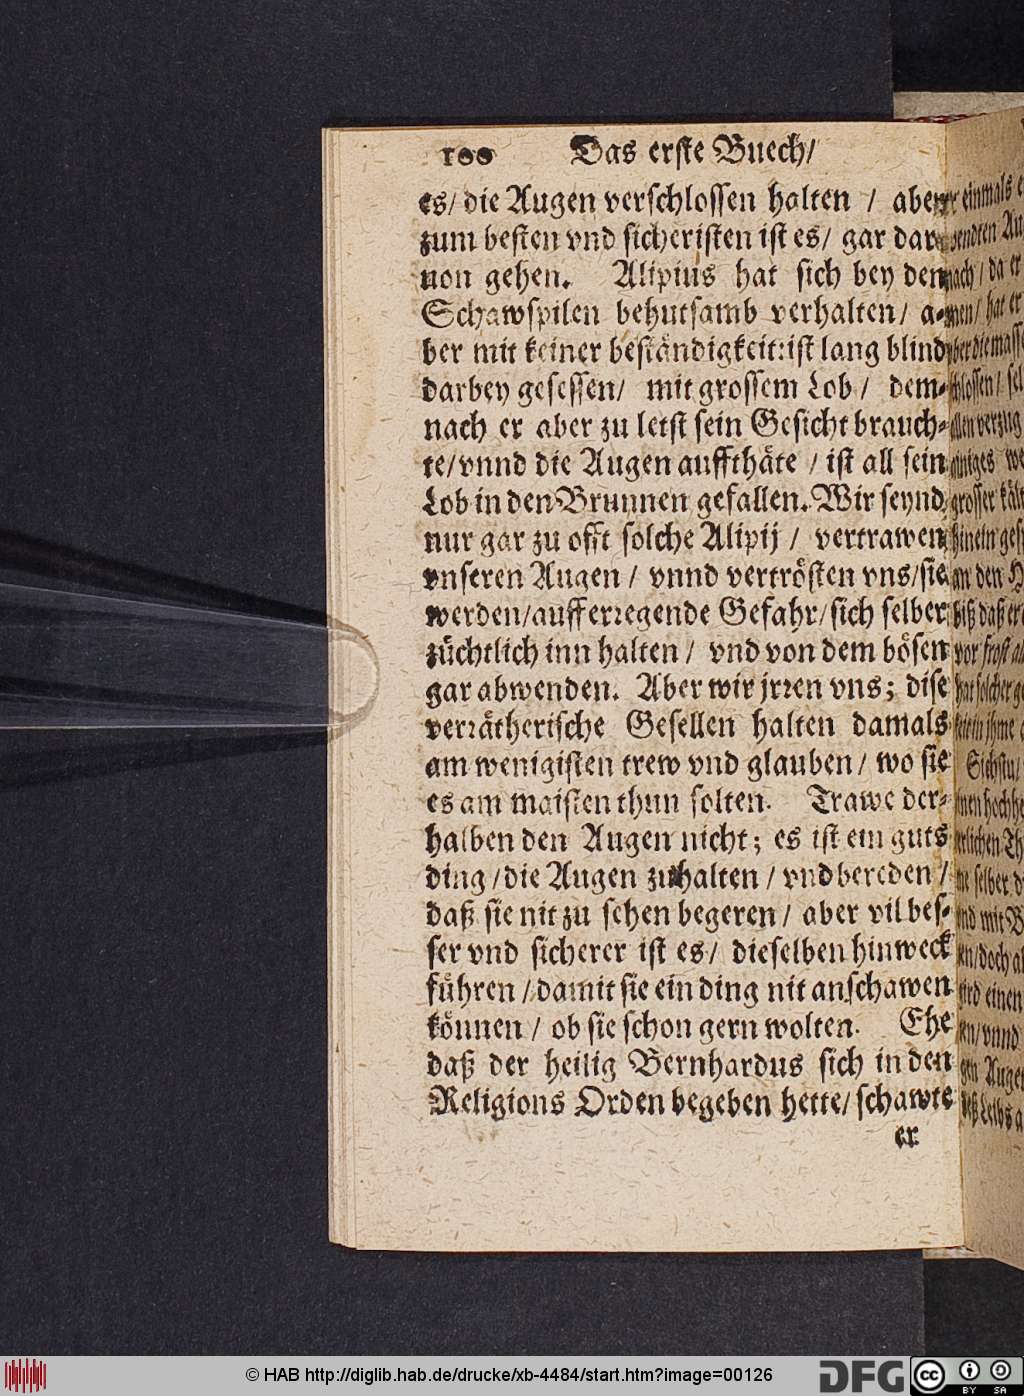 100 Das erste Buech/
es/ die Augen verschlossen halten / aber
zum besten vnd sicheristen ist es/ gar dar-
uon gehen. Alipius hat sich bey den
Schawspilen behutsamb verhalten/ a-
ber mit keiner beständigkeit: ist lang blind
darbey gesessen/ mit grossem Lob/ dem-
nach er aber zu letst sein Gesicht brauch-
te/ vnnd die Augen auffthäte / ist all sein
Lob in den Brunnen gefallen. Wir seynd
nur gar zu offt solche Alipij / vertrawen
vnseren Augen / vnnd vertrösten vns/ sie
werden/ aufferregende Gefahr/ sich selber
züchtlich inn halten / vnd von dem bösen
gar abwenden. Aber wir jrren vns; dise
verrätherische Gesellen halten damals
am wenigisten trew vnd glauben/ wo sie
es am maisten thun solten. Trawe der-
halben den Augen nicht; es ist ein guts
ding / die Augen zuhalten / vnd bereden /
daß sie nit zu sehen begeren / aber vil bes-
ser vnd sicherer ist es/ dieselben hinweck
führen / damit sie ein ding nit anschawen
können / ob sie schon gern wolten. Ehe
daß der heilig Bernhardus sich in den
Religions Orden begeben hette/ schawte
er
© HAB http://diglib.hab.de/drucke/xb-4484/start.htm?image=00126
DFG
cc
BY SA